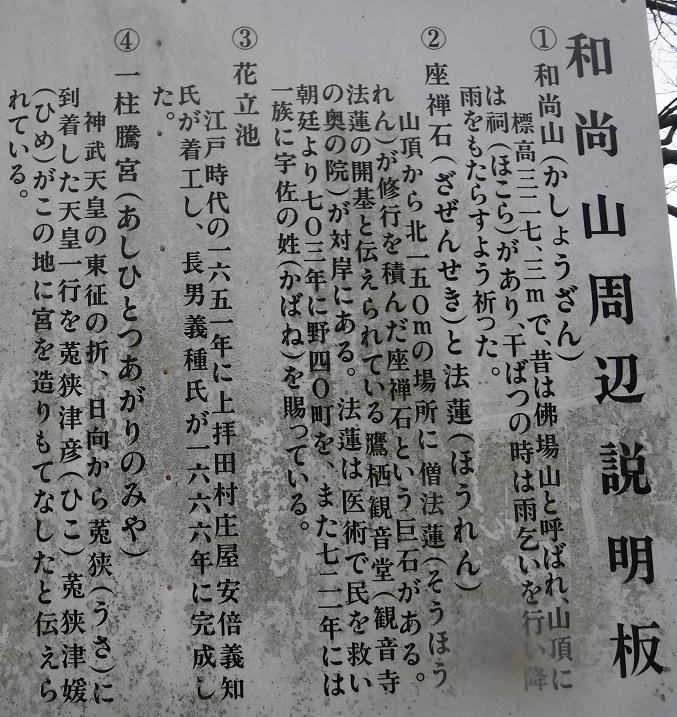 和尚山周辺説明板
①和尚山(かしょうざん)
標高三二七、三mで、昔は佛場山と呼ばれ、山頂に
は祠(ほこら)があり、干ばつの時は雨乞いを行い降
雨をもたらすよう祈った。
②座禅石(ざぜんせき)と法蓮(ほうれん)
山頂から北一五0mの場所に僧法蓮(そうほう
れん)が修行を積んだ座禅石という巨石がある。
法蓮の開基と伝えられている鷹栖観音堂(観音寺
の奥の院)が対岸にある。法蓮は医術で民を救い
朝廷より七0三年に野四0町を、また七二一年には
一族に宇佐の姓(かばね)を賜っている。
③花立池
江戸時代の一六五一年に上拝田村庄屋安倍義知
氏が着工し、長男義種氏が一六六六年に完成し
た。
④一柱騰宮(あしひとつあがりのみや)
神武天皇の東征の折、日向から菟狭(うさ)に
到着した天皇一行を菟狭津彦(ひこ)菟狭津媛
(ひめ)がこの地に宮を造りもてなしたと伝えら
れている。